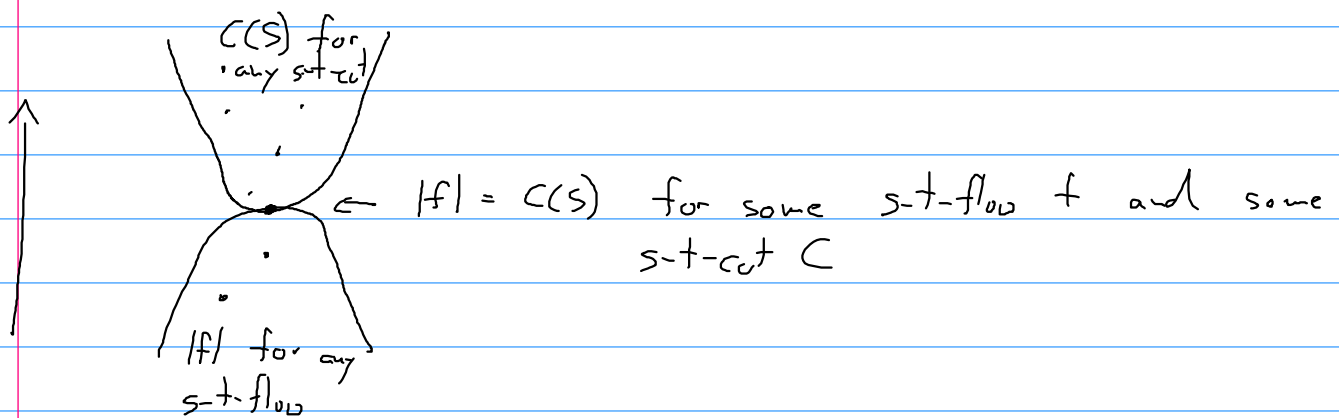 C(S) for
any s-t-cut
|f| = C(S) for some s-t-flow f and some
s-t-cut C
|f| for any
s-t-flow